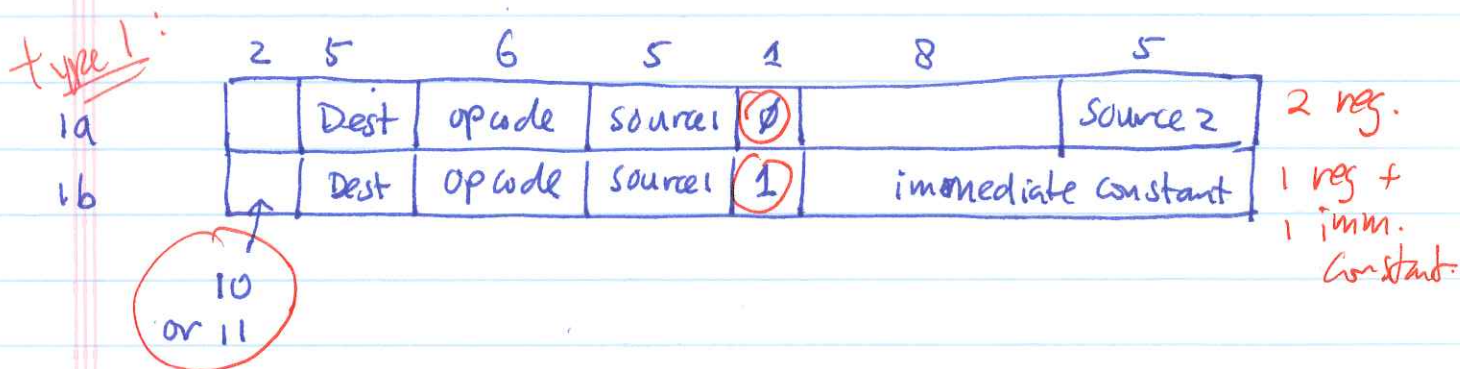 type 1:
2 5 6 5 1 8 5
1a Dest opcode source1 0 source 2 2 reg.
1b Dest opcode source1 1 immediate constant 1 reg +
1 imm.
constant.
10
or 11